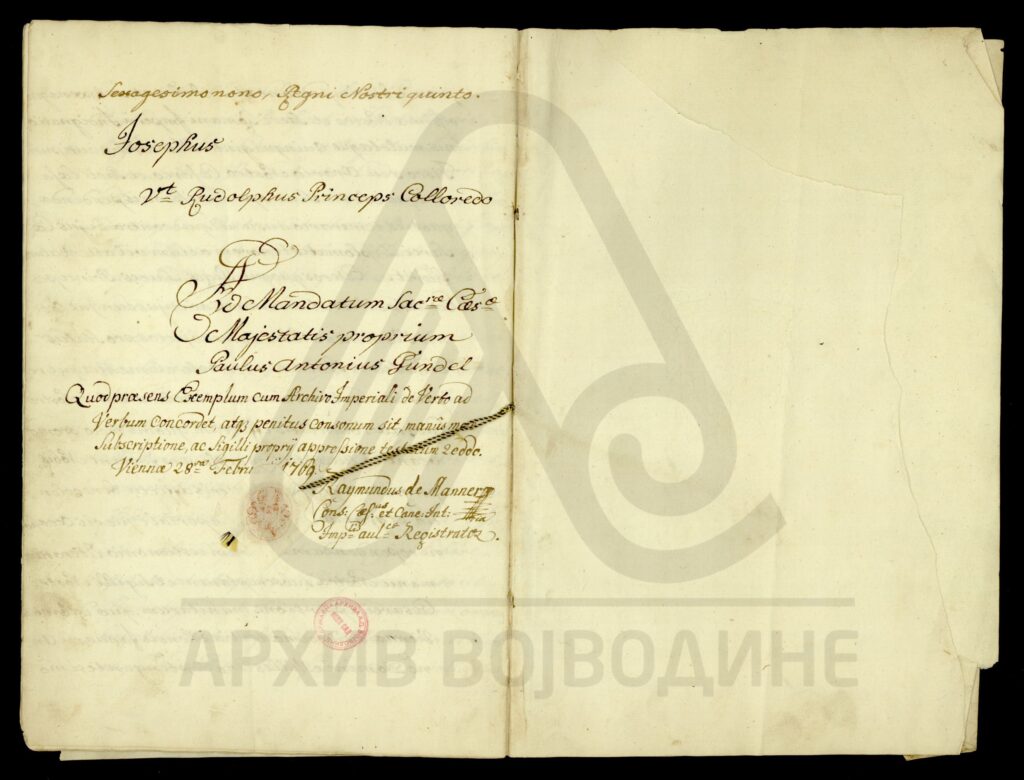 Sexagesimo nono, Regni Nostri quinto.
Josephus
Vt Rudolphus Princeps Colloredo
Ad Mandatum Sacræ Cæsæ
Majestatis proprium
Paulus Antonius Gundel
Quod præsens Exemplum cum Archivo Imperiali de Verbo ad
Verbum Concordet, atq; penitus consonum sit, manûs meæ
Subscriptione, ac Sigilli proprij appressione testatum reddo.
Viennæ 28 Febru 1769.
Raymundus de Manner
Cons: Cæs: et Canc: Int:
Imp Registrator.
АРХИВ ВОЈВОДИНЕ